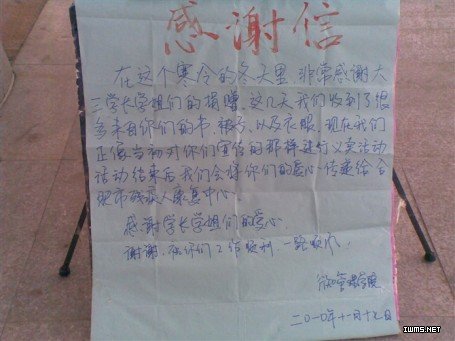 感谢信
在这个寒冷的冬天里,非常感谢大
三学长学姐们的捐赠,这几天我们收到了很
多来自你们的书、被子、以及衣服。现在我们
正像当初对你们宣传的那样进行义卖活动
活动结束后我们会将你们的爱心传递给合
肥市残疾人康复中心。
感谢学长学姐们的爱心
谢谢,祝你们工作顺利,一路顺风。
管理学院
二〇一〇年十一月十七日
IWMS.NET